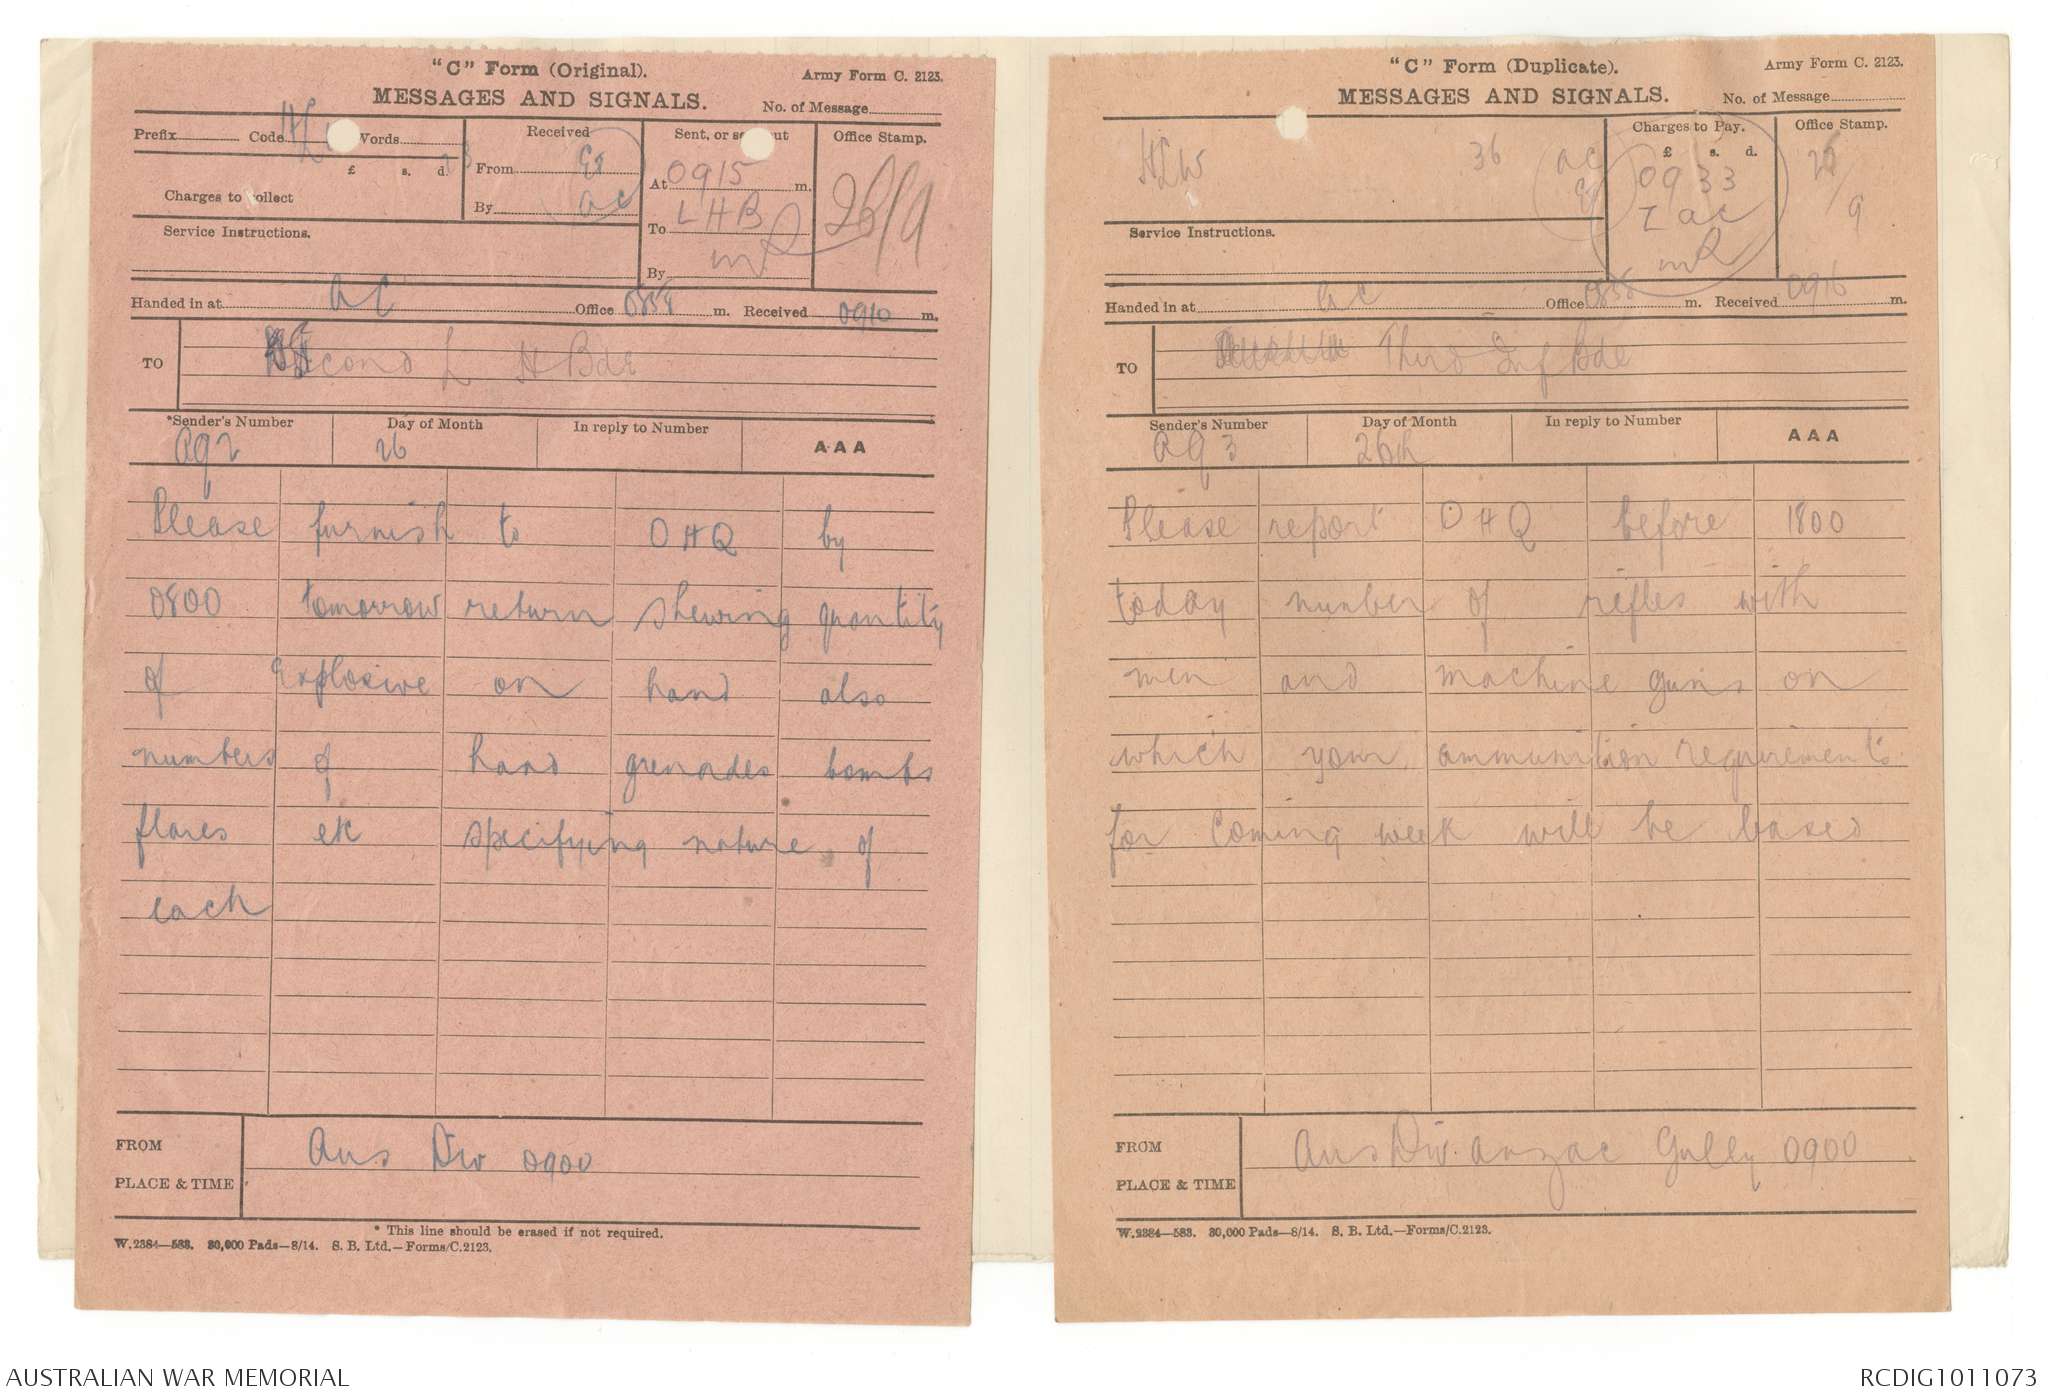 "C" Form (Original).
Army Form C. 2123.
MESSAGES AND SIGNALS.
No. of Message
Prefix Code Words
Received
Sent, or sent out
Office Stamp.
£ s. d.
From
At 0915 m.
26/9
Charges to collect
By AC
To LHB
Service Instructions.
By
Handed in at AC Office m. Received 0910 m.
TO
Second L H Bde
*Sender's Number
Day of Month
In reply to Number
AAA
AQ2
26
Please furnish to DHQ by
0800 tomorrow return shewing quantity
of Explosive on hand also
numbers of hand grenades bombs
flares etc specifying nature of
each
FROM
Aus Div 0900
PLACE & TIME
* This line should be erased if not required.
W.2384—583. 30,000 Pads—8/14. S. B. Ltd.—Forms/C.2123.
"C" Form (Duplicate).
Army Form C. 2123.
MESSAGES AND SIGNALS.
No. of Message
Charges to Pay.
Office Stamp.
£ s. d.
36 AC
0933
Service Instructions.
Handed in at AC Office m. Received 0916 m.
TO
Third Inf Bde
Sender's Number
Day of Month
In reply to Number
AAA
AQ3
26th
Please report DHQ before 1800
today number of rifles with
men and machine guns on
which your ammunition requirements
for Coming week will be based
FROM
Aus Div. Anzac Gully 0900
PLACE & TIME
W.2384—583. 30,000 Pads—8/14. S. B. Ltd.—Forms/C.2123.
AUSTRALIAN WAR MEMORIAL
RCDIG1011073